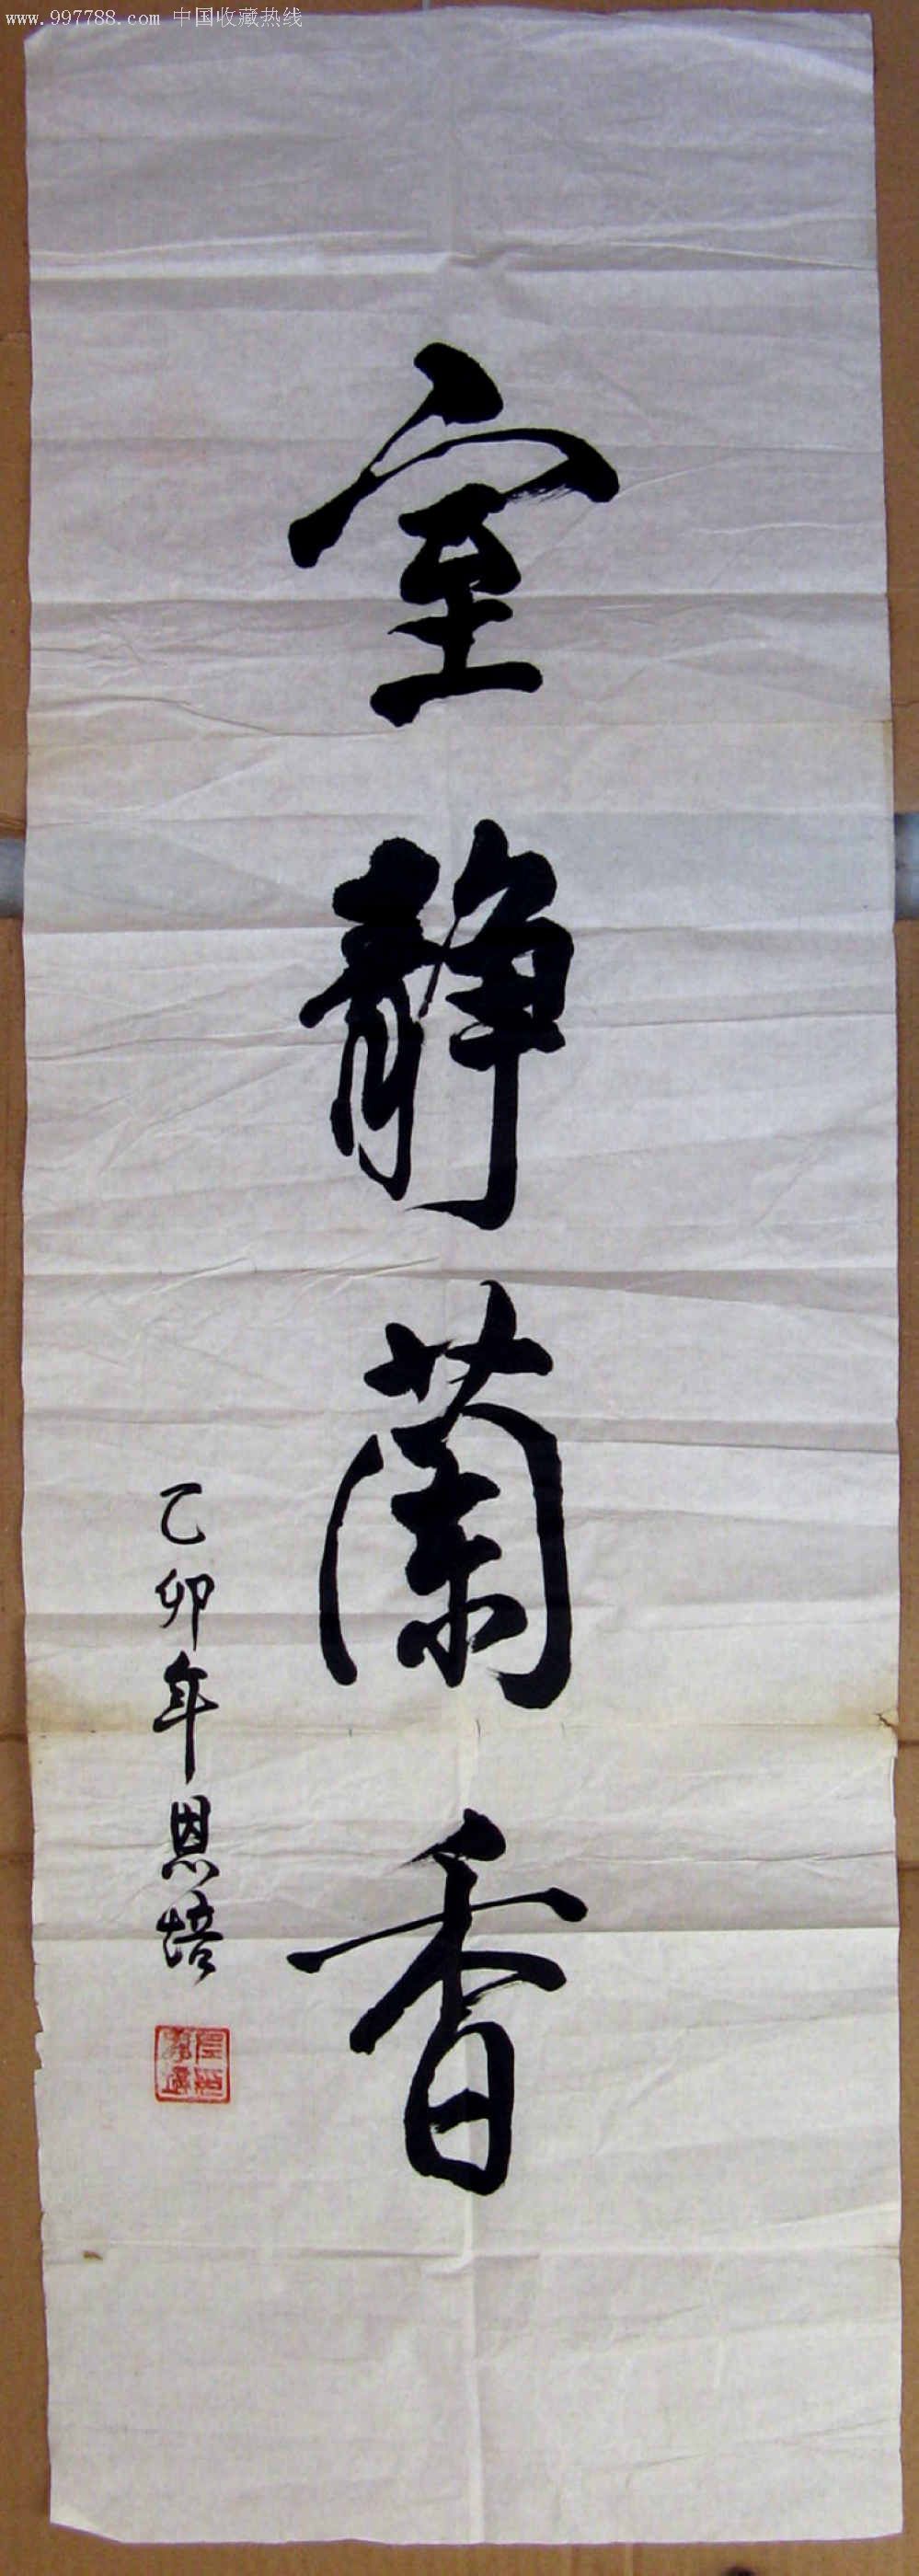 www.997788.com 中国收藏热线
室静蘭香
乙卯年恩培